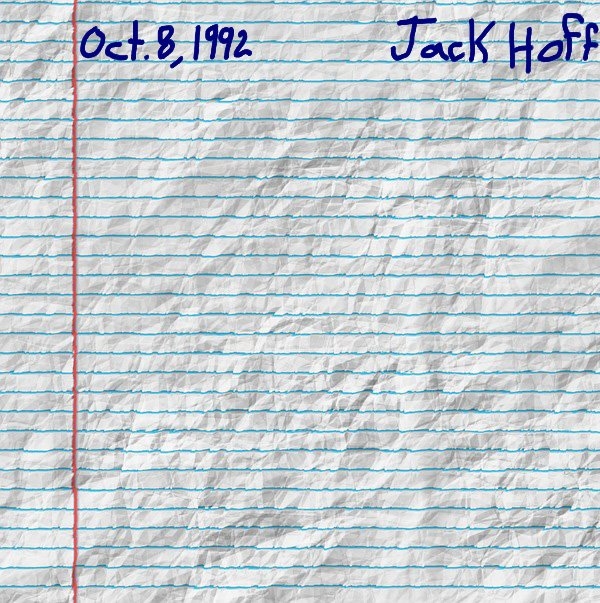 Oct. 8, 1992 Jack Hoff